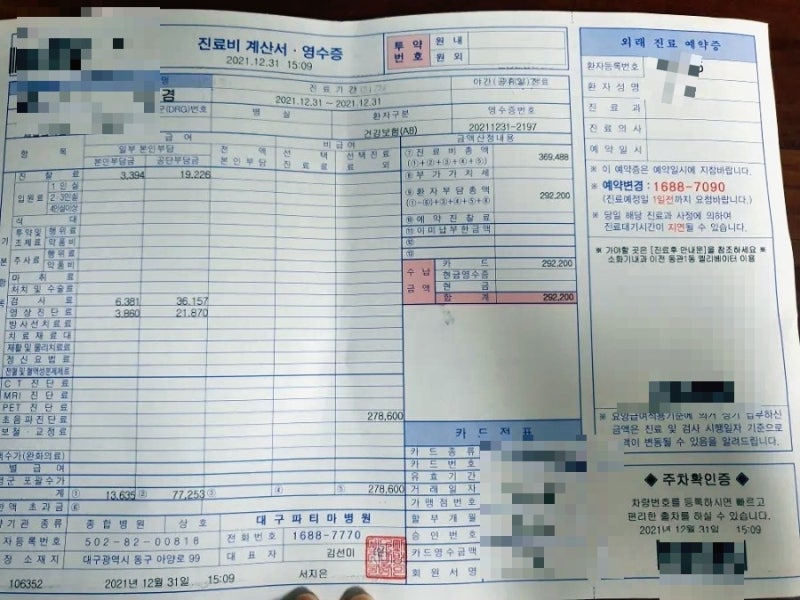 진료비 계산서 · 영수증
2021.12.31 15:09
투약 번호
원내
원외
명
진료기간
야간(공휴일)진료
겸
2021.12.31 ~ 2021.12.31
(DRG)번호
병실
환자구분
영수증번호
건강보험(A8)
20211231-2197
항목
급여
비급여
금액산정내용
일부 본인부담
전액 본인부담
선택 진료료
선택진료료 외
본인부담금
공단부담금
⑦ 진료비총액 (①+②+③+④+⑤)
369,488
진찰료
3,394
19,226
입원료
1인실
2·3인실
4인실이상
⑧ 부가가치세
⑨ 환자부담총액
292,200
식대
⑩ 예약진찰료
투약및 조제료
행위료
약품비
⑪ 이미납부한금액
⑫
주사료
행위료
약품비
⑬
마취료
처치 및 수술료
수납금액
카드
292,200
현금영수증
현금
합계
292,200
검사료
6,381
36,157
영상진단료
3,860
21,870
방사선치료료
치료재료대
재활 및 물리치료료
정신요법료
전혈 및 혈액성분제제료
CT 진단료
MRI 진단료
PET 진단료
초음파진단료
278,600
보철·교정료
수가(완화의료)
별급여
포괄수가
계
①
13,635
②
77,253
③
④
⑤
278,600
액 초과금
⑥
카드전표
카드종류
카드번호
유효기간
거래일자
가맹점번호
할부개월
승인번호
카드영수금액
회원서명
기관 종류
종합병원
상호
대구파티마병원
자등록번호
502-82-00818
전화번호
1688-7770
장 소재지
대구광역시 동구 아양로 99
대표자
김선미
106352
2021년 12월 31일
15:09
서지은
외래 진료 예약증
환자등록번호
환자성명
진료과
진료의사
예약일시
※ 이 예약증은 예약일시에 지참바랍니다.
※ 예약변경 : 1688-7090
(진료예정일 1일전까지 요청바랍니다.)
※ 당일 해당 진료과 사정에 의하여
진료대기시간이 지연될 수 있습니다.
※ 가야할 곳은 [진료후 안내문]을 참조하세요 ※
소화기내과 이전 동관1동 엘리베이터 이용
금액은 진료 및 검사 시행일자 기준으로
변동될 수 있음을 알려드립니다.
◈ 주차확인증 ◈
차량번호를 등록하시면 빠르고
편리한 출차를 하실 수 있습니다.
2021년 12월 31일 15:09